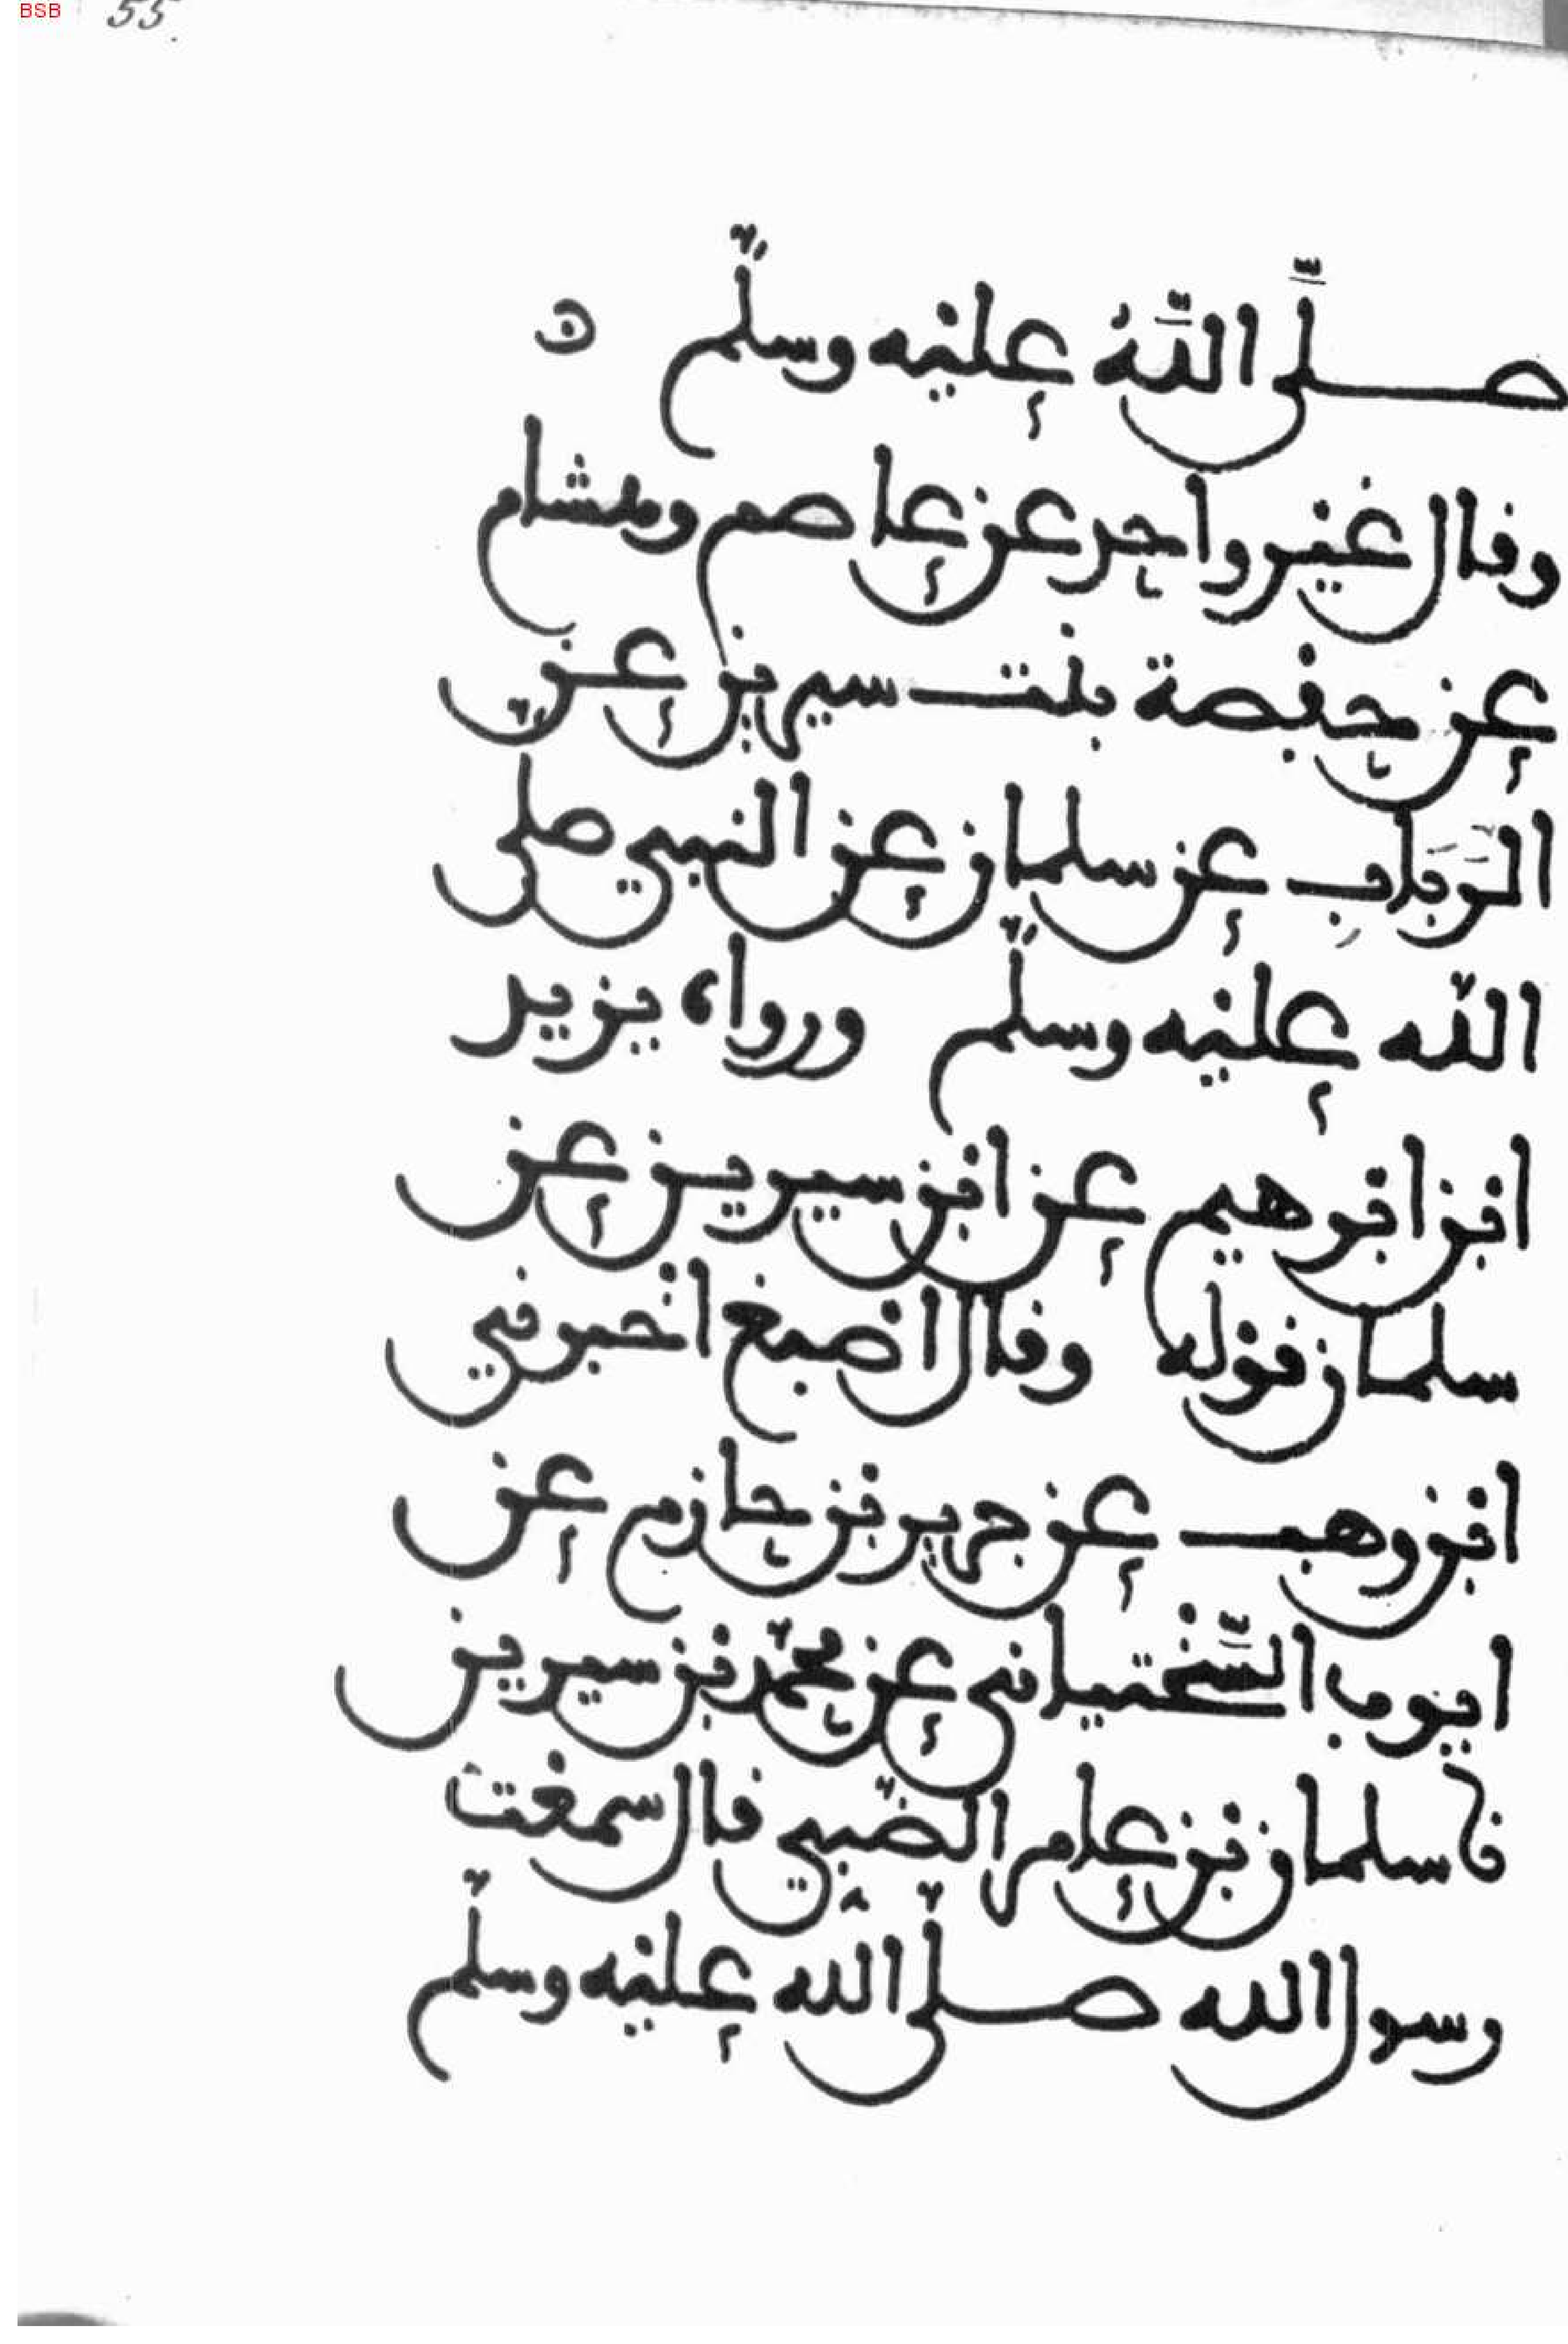 BSB 55.
صلَّى اللَّهُ عليه وسلّم
وقال غير واحد عن عاصم وهشام
عن حفصة بنت سيرين عن
الرَّبَاب عن سلمان عن النبي صلى
اللّٰه عليه وسلّم ورواه يزيد
ابن ابرهيم عن ابن سيرين عن
سلمان قوله وقال اصبغ اخبرني
ابن وهب عن جرير بن حازم عن
ايوب السَّختياني عن محمّد بن سيرين
نا سلمان بن عامر الضّبي قال سمعت
رسول الله صلّى اللّٰه عليه وسلّم